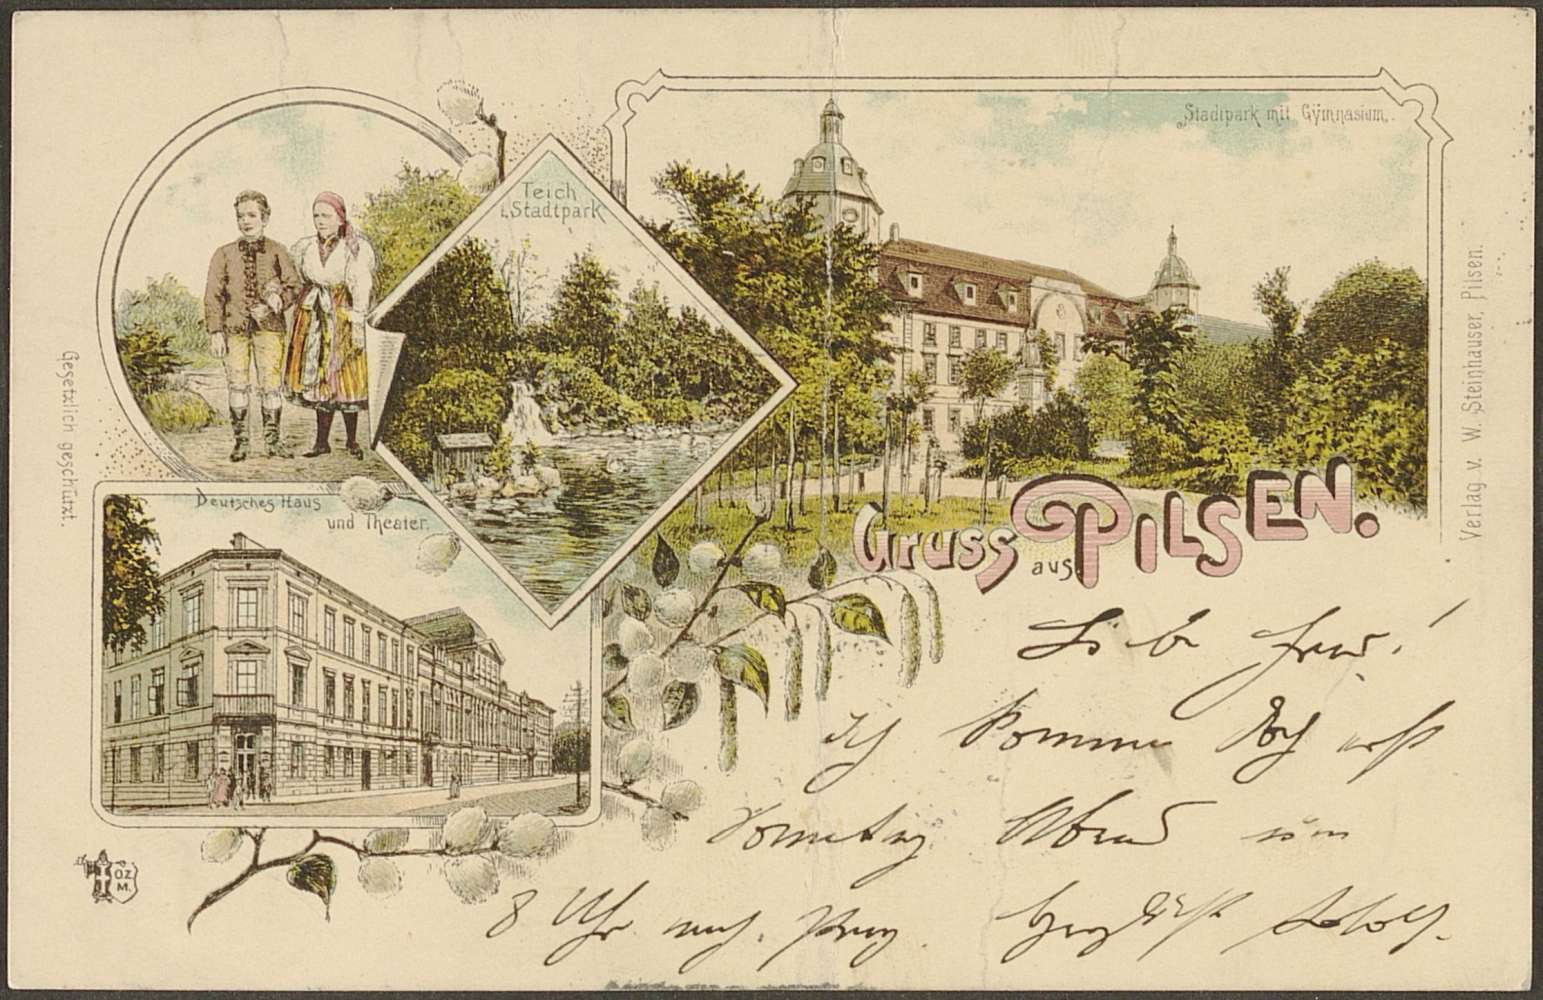 Stadtpark mit Gÿmnasium.
Teich
i. Stadtpark
Deutsches Haus
und Theater.
Gruss aus PILSEN.
Gesetzlich geschützt.
Verlag v. W. Steinhauser, Pilsen.
O.Z.
M.
Ich komme doch erst
Sonntag Abend um
8 Uhr nach Prag. Adolf.